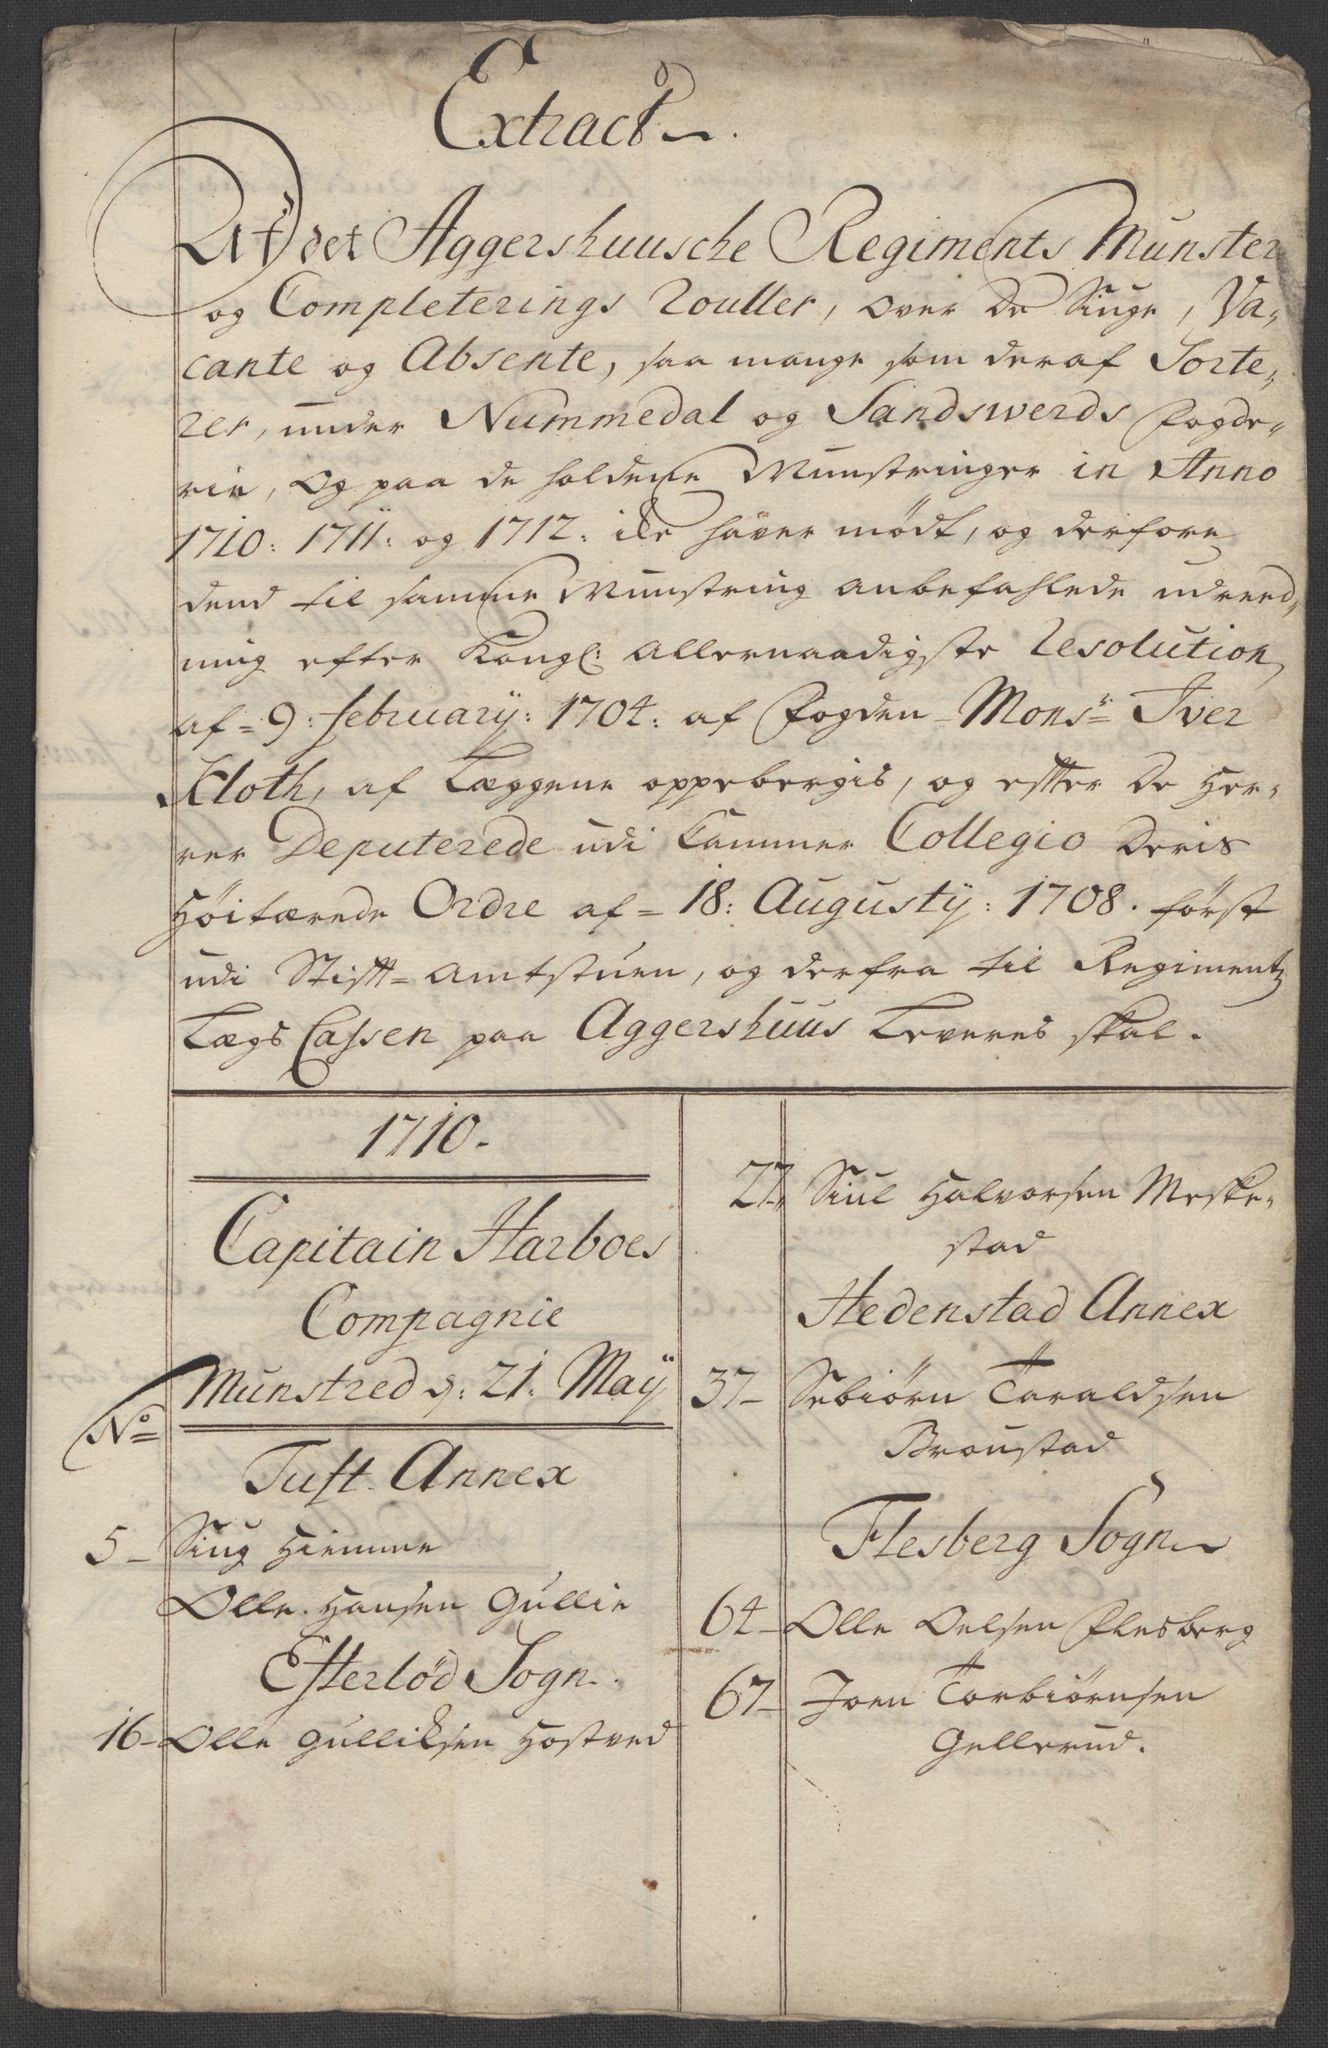 Extract
Af det Aggershuusche Regiments Munster
og Completerings Rouller, over De Siuge, Va-
cante og Absente, saa mange som deraf Sorte-
rer, under Nummedal og Sandswerds Fogde-
rie, og paa de holdene Munstringer in Anno
1710: 1711: og 1712: icke haver mødt, og derfore
dend til samme Munstring anbefahlede udreed-
ning efter Kongl: allernaadigste Resolution
af 9: february: 1704: af Fogden Monsr Iver
Kloth, af Læggene oppebergis, og efter De Her-
rer Deputerede udi Cammer Collegio Deris
Høitærede Ordre af 18: Augustij: 1708. først
udi Stifft-amtstuen, og derfra til Regimentz
Lægs Cassen paa Aggershuus Leveres skal.
1710.
Capitain Harboes
Compagnie
Munstred d: 21: Maij
No
Tuft Annex
5 Siug Hiemme
Olle Hansen Gullie
Efterlød Sogn.
16 Olle Gulliksen Hostved
27 Siul Halvorsen Meske-
stad
Hedenstad Annex
37 Sebiørn Taraldsen
Broustad
Flesberg Sogn
64 Olle Oelsen Flesberg
67 Joen Torbiørnsen
Gellerud.